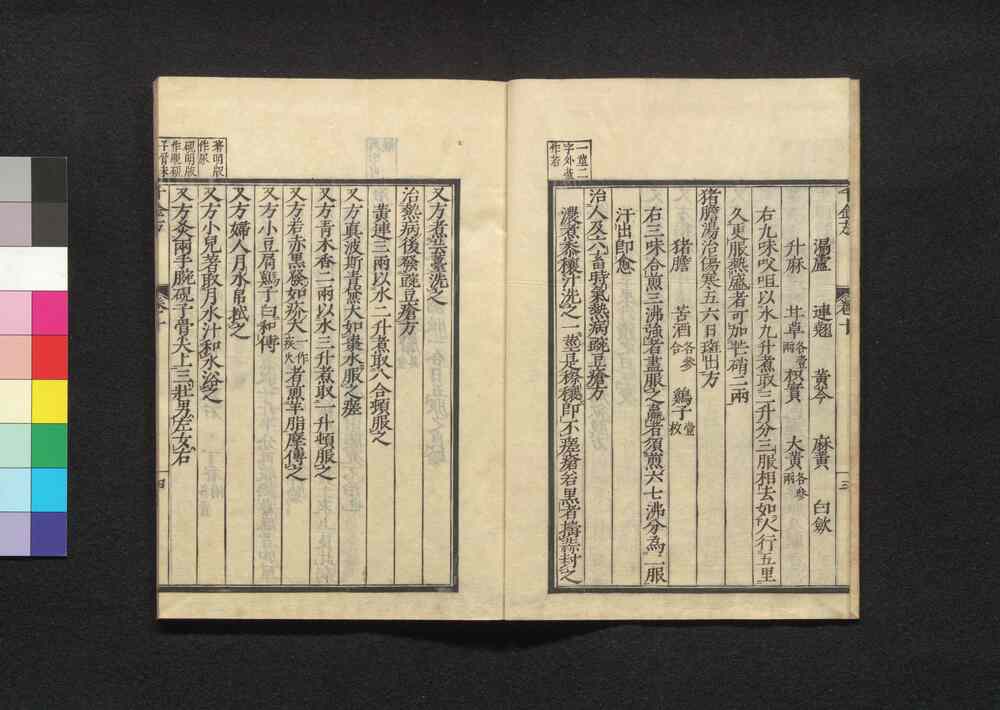 漏盧 連翹 黃芩 麻黃 白斂
升麻 甘草各壹兩 枳實 大黃各參兩
右九味㕮咀以水九升煮取三升分三服相去如人行五里
久更服熱盛者可加芒硝二兩
猪膽湯治傷寒五六日斑出方
猪膽 苦酒各參合 鷄子壹枚
右三味合煎三沸強者盡服之羸者須煎六七沸分為二服
汗出即愈
治人及六畜時氣熱病豌豆瘡方
濃煮黍穰汁洗之一莖是穄穰即不瘥瘡若黑者擣蒜封之
又方煮芸薹洗之
治熱病後發豌豆瘡方
黃連三兩以水二升煮取八合頓服之
又方真波斯青黛大如棗水服之瘥
又方青木香二兩以水三升煮取一升頓服之
又方若赤黑發如疥大一作疾火者煎羊脂摩傅之
又方小豆屑鷄子白和傅
又方婦人月水帛拭之
又方小兒著取月水汁和水浴之
又方灸兩手腕硯子骨尖上三壯男左女右
四